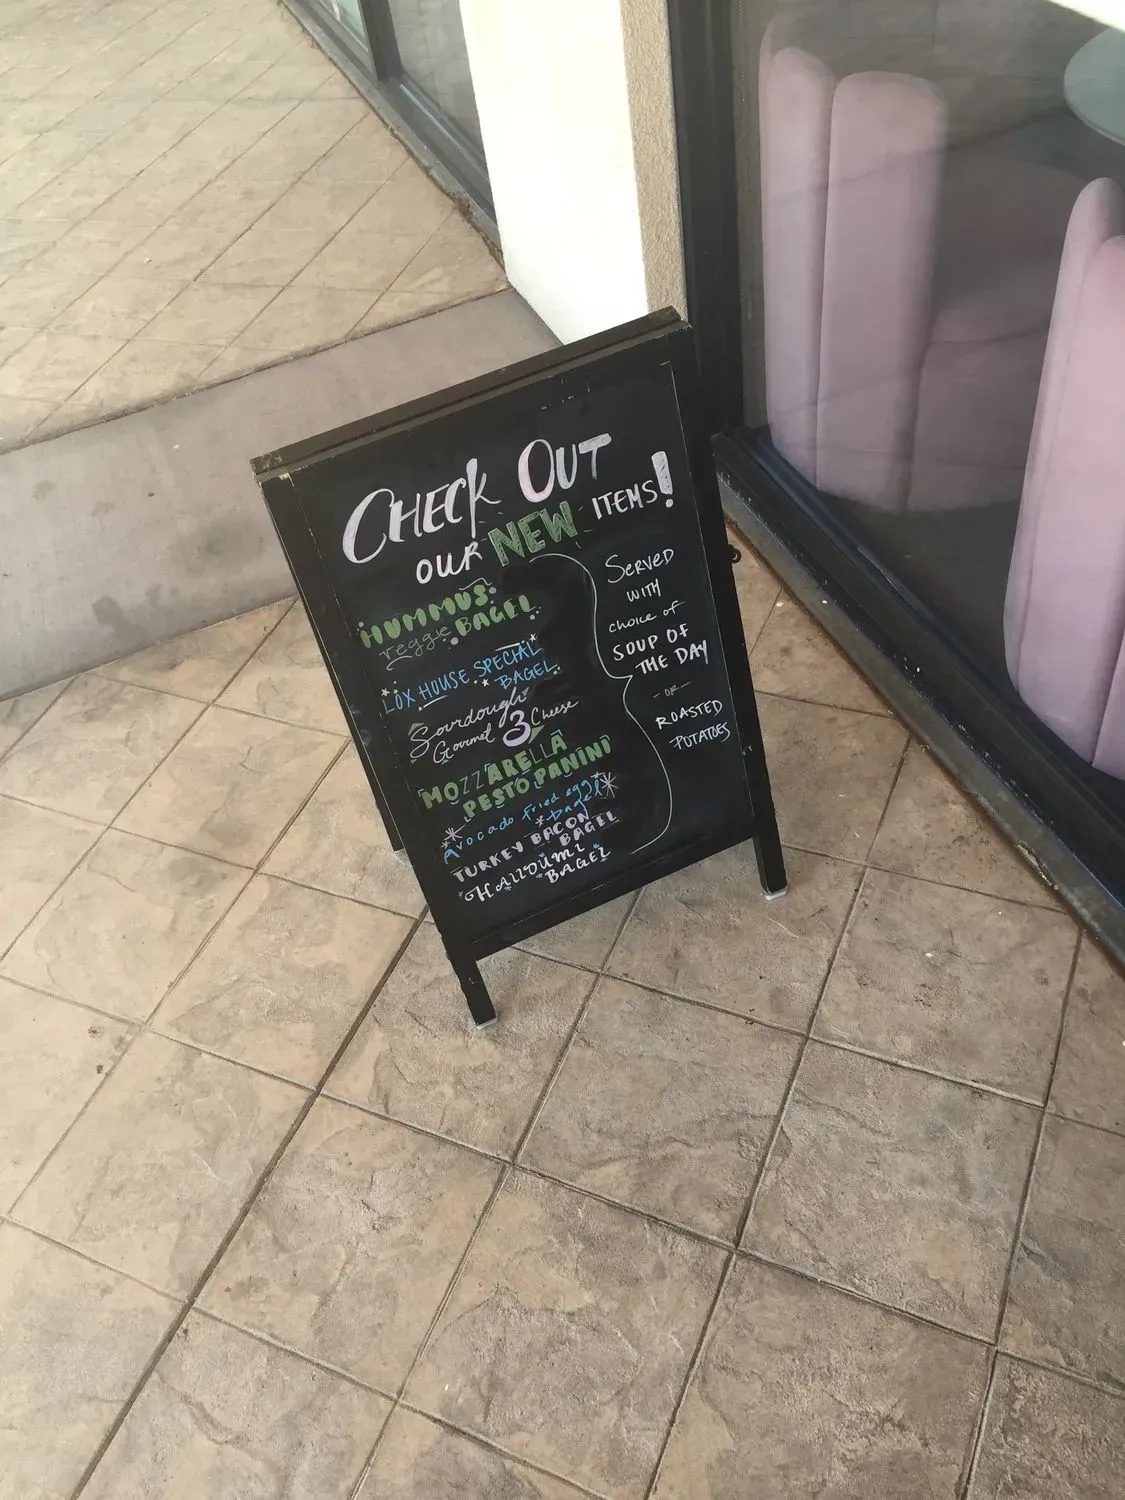 CHECK OUT
OUR NEW ITEMS!
HUMMUS
veggie BAGEL
LOX HOUSE SPECIAL
BAGEL
Sourdough
Gourmet 3 Cheese
MOZZARELLA
PESTO PANINI
Avocado fried egg
bagel
TURKEY BACON
BAGEL
HALLOUMI
BAGEL
SERVED
WITH
choice of
SOUP OF
THE DAY
- OR -
ROASTED
POTATOES